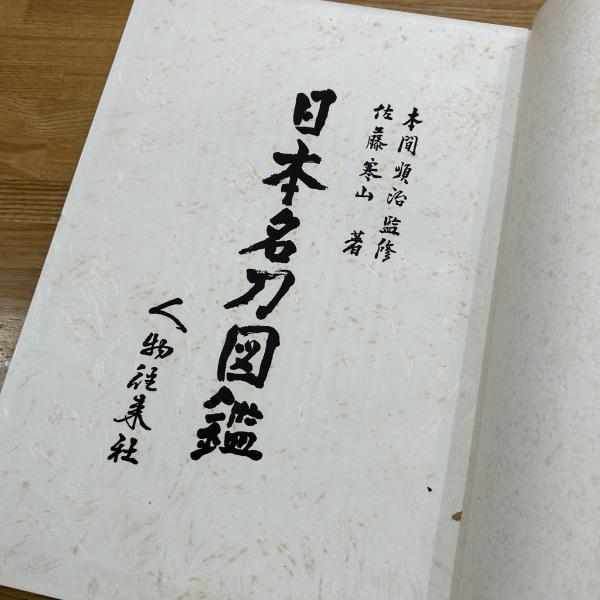 本間順治監修
佐藤寒山 著
日本名刀図鑑
人物往来社